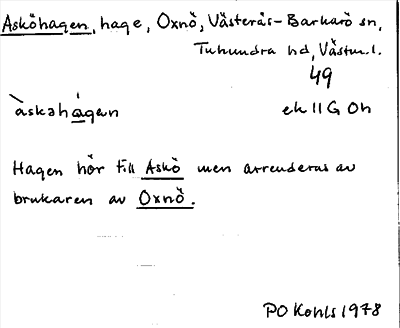 Asköhagen, hage, Oxnö, Västerås-Barkarö sn,
Tuhundra hd, Västm.l.
49
àskahá̱gen
ek 11 G 0h
Hagen hör till Askö men arrenderas av
brukaren av Oxnö.
PO Kohls 1978